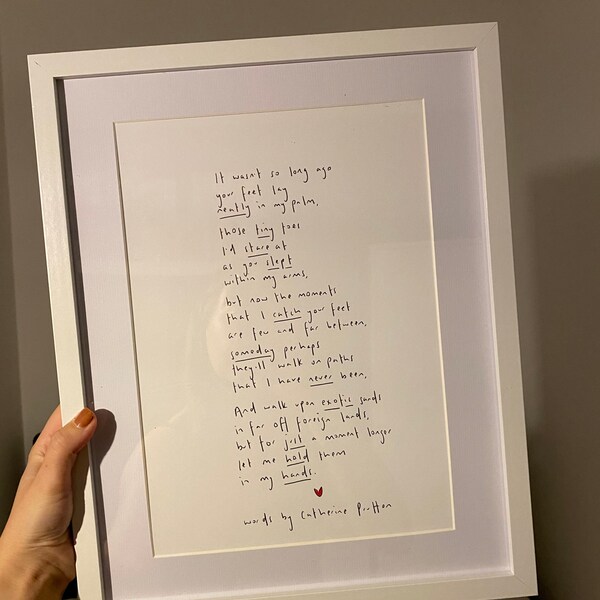 It wasn't so long ago
your feet lay
neatly in my palm,
those tiny toes
I'd stare at
as you slept
within my arms,
but now the moments
that I catch your feet
are few and far between,
someday perhaps
they'll walk on paths
that I have never been,
And walk upon exotic sands
in far off foreign lands,
but for just a moment longer
let me hold them
in my hands.
words by Catherine Prutton